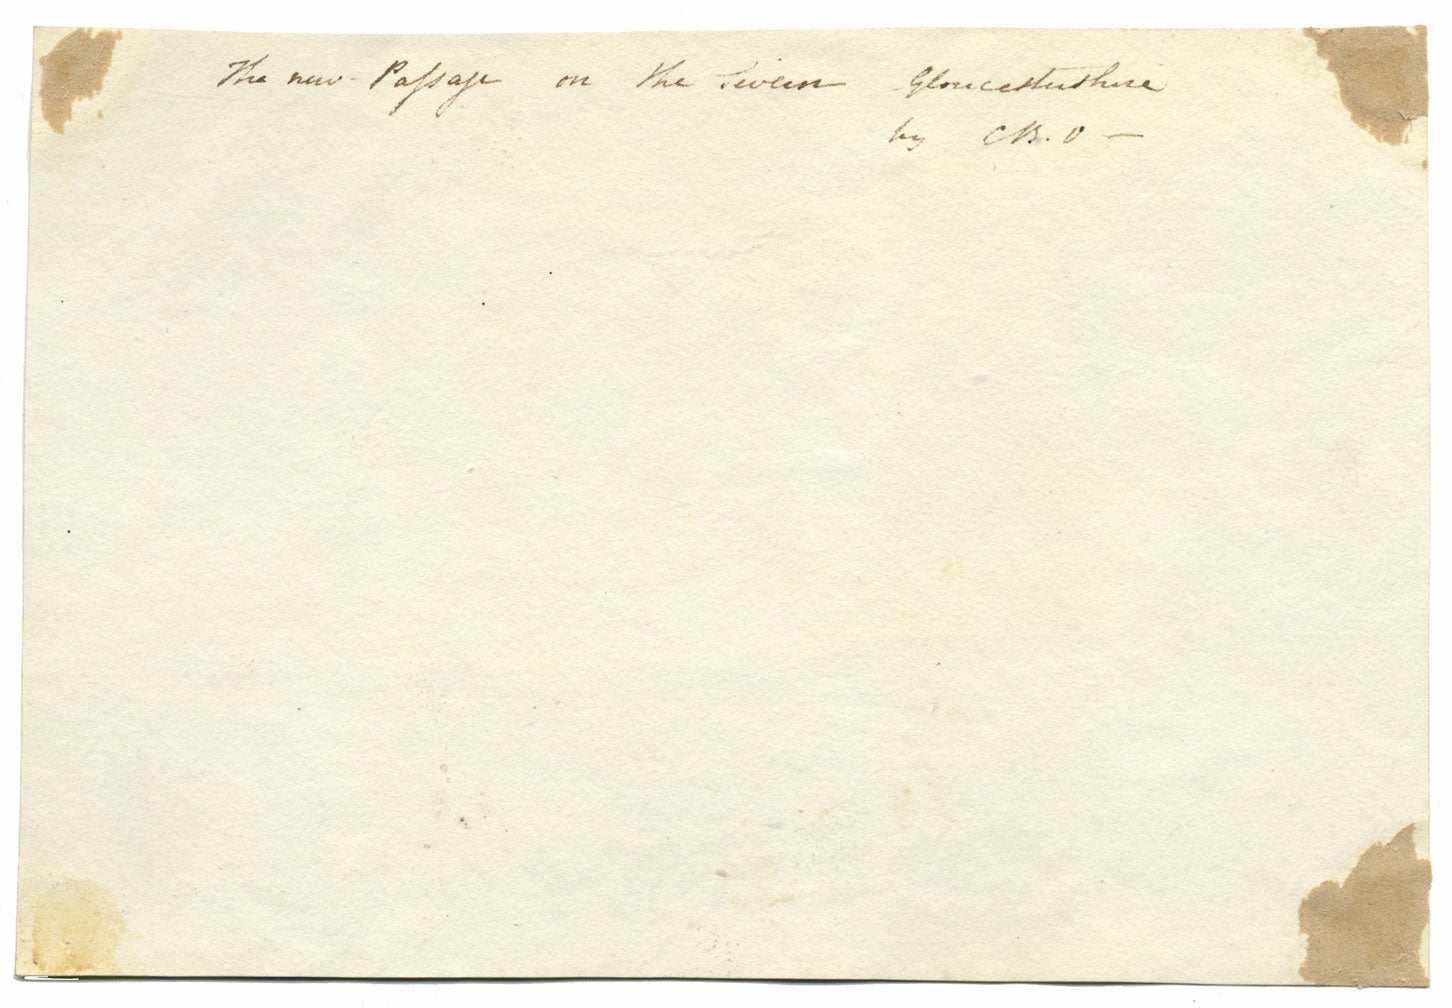 The new Paſsage on the Severn Gloucestershire
by CB. O —